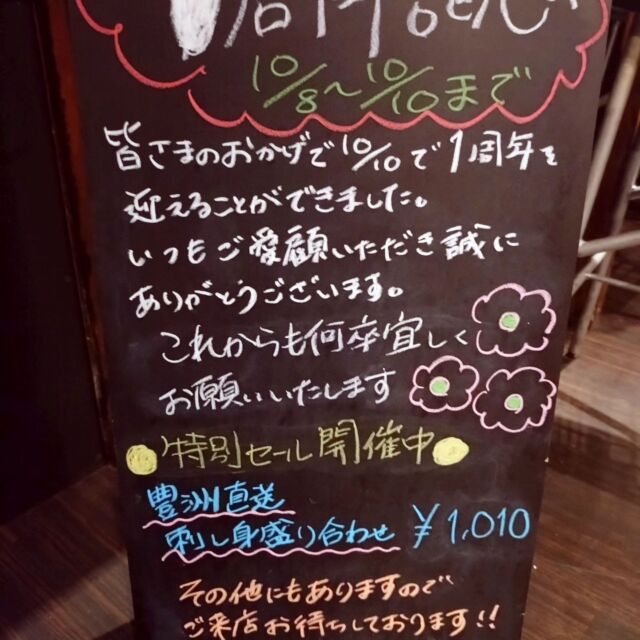 10/8〜10/10まで
皆さまのおかげで10/10で1周年を
迎えることができました。
いつもご愛顧いただき誠に
ありがとうございます。
これからも何卒宜しく
お願いいたします
特別セール開催中
豊洲直送
刺し身盛り合わせ ¥1,010
その他にもありますので
ご来店お待ちしております!!